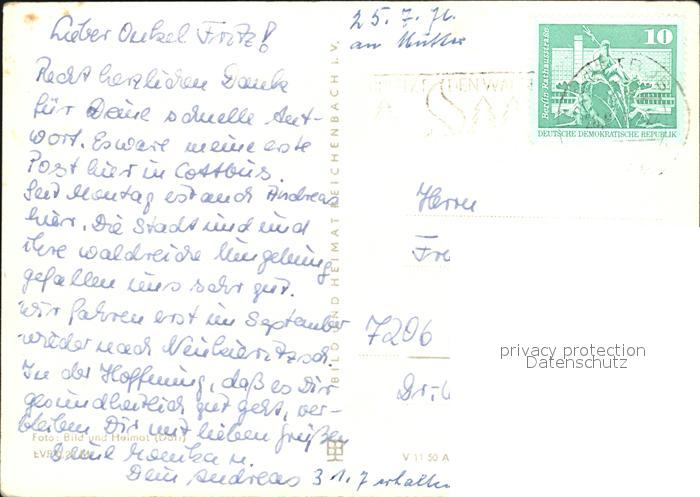 Lieber Onkel Fritz!
Recht herzlichen Dank
für Deine schnelle Ant-
wort. Es ware meine erste
Post hier in Cottbus.
Seit Montag ist auch Andreas
hier. Die Stadt und
ihre waldreiche Umgebung
gefallen uns sehr gut.
Wir fahren erst im September
wieder nach
In der Hoffnung, daß es Dir
gesundheitlich gut geht, ver-
bleiben Dir mit lieben Grüßen
Deine Monika u.
Dein Andreas
Foto: Bild und Heimat
BILD UND HEIMAT REICHENBACH I. V.
V 11 50 A
25. 7. 76.
an
10
Berlin, Rathausstraße
DEUTSCHE DEMOKRATISCHE REPUBLIK
Herrn
Fr
7206
privacy protection
Datenschutz
31.7 erhalten